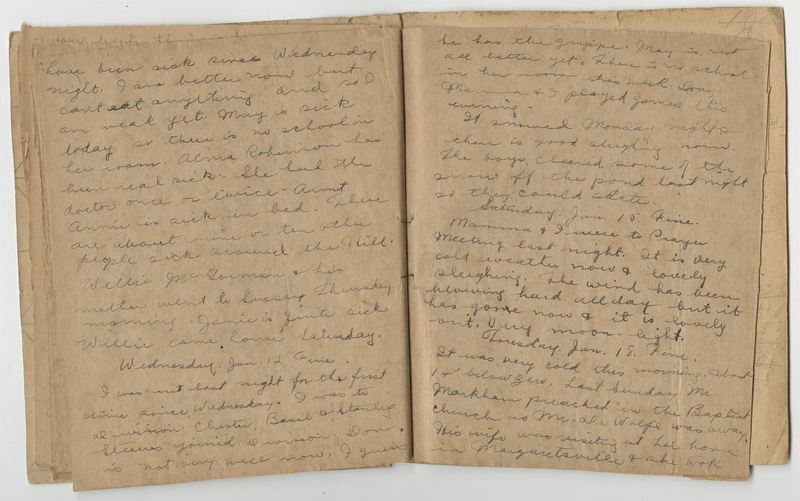 have been sick since Wednesday
night. I am better now but
cant eat anything and so I
am weak yet. May is sick
today so there is no school in
her room. Alma Roberison has
been real sick. She had the
doctor once or twice. Aunt
Annie is sick in bed. There
are about nine or ten other
people sick around the Hill.
Willie Mc Gorman & his
mother went to Sussex Thursday
morning. Janie is quite sick
Willie came home Saturday.
Wednesday, Jan. 12 Fine.
I was out last night for the first
time since Wednesday. I was to
Division. Chester, Basil & Stanley
Steeves joined Division. Don
is not very well now. I guess
he has the grippe. May is not
all better yet. There is no school
in her room this week. Don,
Mamma & I played games this
evening.
It snowed Monday night &
there is good sleighing now.
The boys cleared some of the
snow off the pond last night
so they could skate.
Saturday, Jan. 15. Fine.
Mamma & I were to Prayer
Meeting last night. It is very
cold weather now & lovely
sleighing. The wind has been
blowing hard all day but it
has gone now & it is lovely
out. Very moon-light.
Tuesday, Jan. 18. Fine.
It was very cold this morning. About
14° below zero. Last Sunday Mr.
Markham preached in the Baptist
church as Mr. De Wolfe was away.
His wife was visiting at her home
in Margaretsville & she took